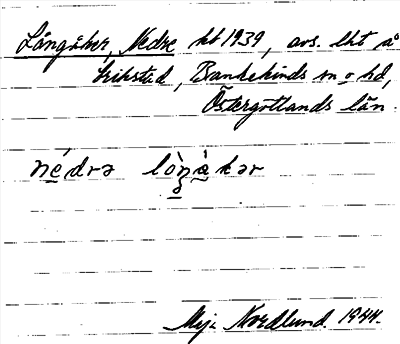 Långåker, Nedre kt 1939, avs. lht å
Erikstad, Bankekinds sn o hd,
Östergötlands län.
nédrə lòŋàkər
Mija Nordlund. 1944.